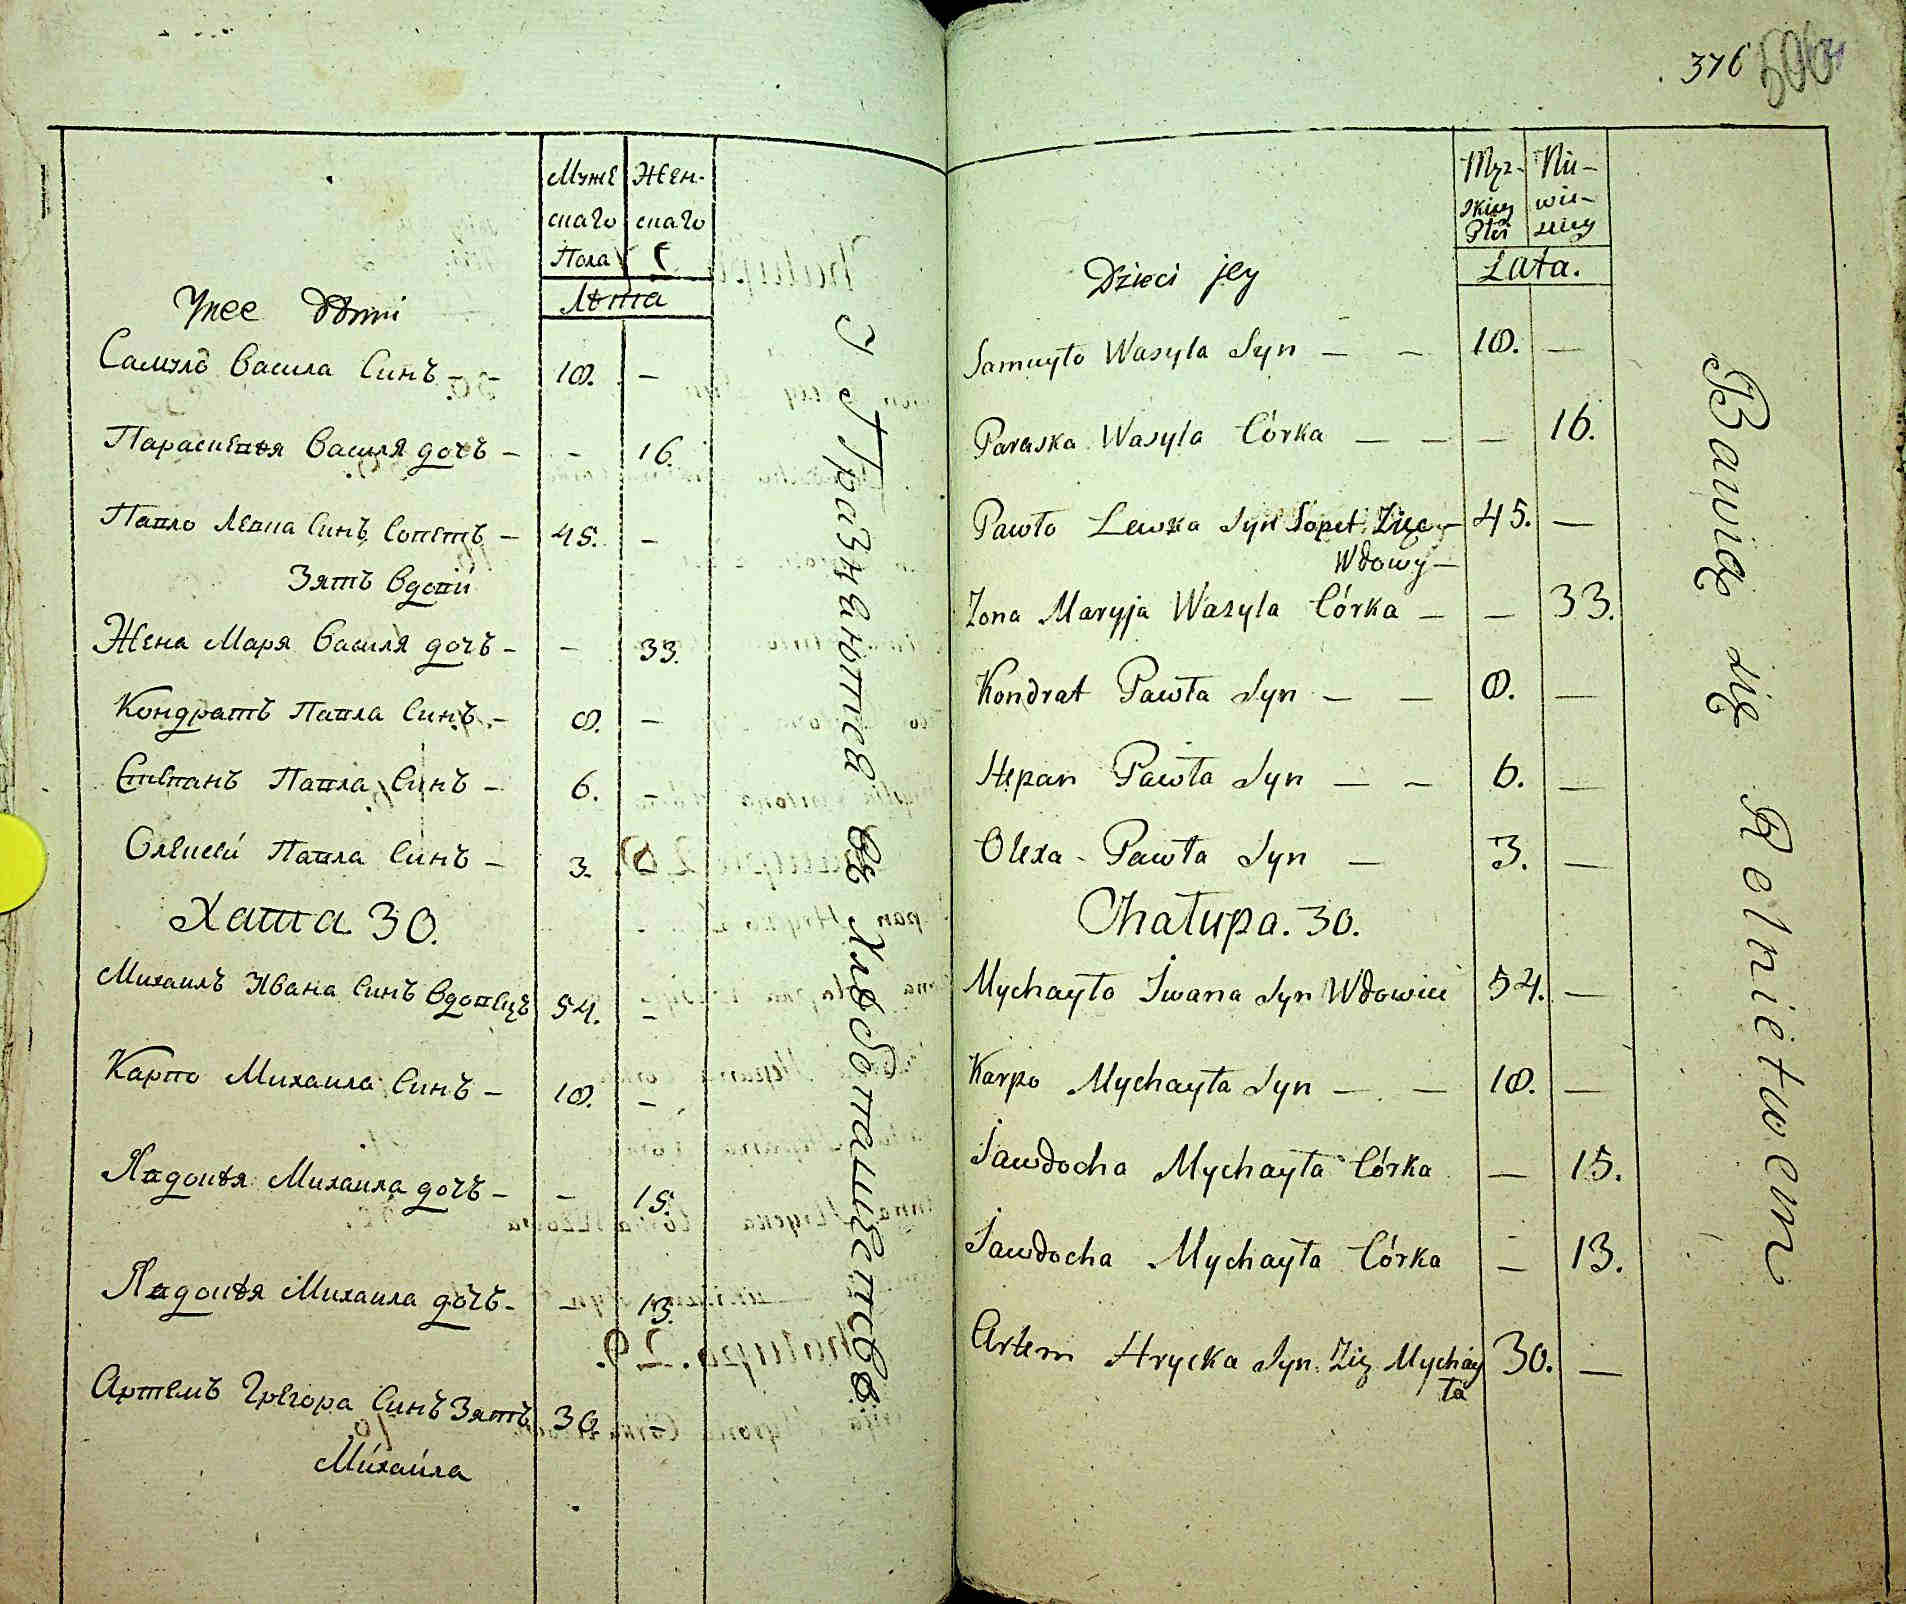 Муже Жен-
скаго скаго
Пола
Лѣта
У нее дѣти
Самуло Васила Синъ - - 18. -
Параскевія Василя дочъ - - 16.
Павло Левка Синъ Сопетъ - 45. -
Зятъ Вдови
Жена Маря Василя дочъ - - 33.
Кондратъ Павла Синъ - 8. -
Степанъ Павла Синъ - 6. -
Олексѣй Павла Синъ - 3.
Хата 30.
Михаилъ Ивана Синъ Вдовецъ 54. -
Карпо Михаила Синъ - 18. -
Явдокія Михаила дочъ - - 15.
Явдокія Михаила дочъ - - 13.
Артемъ Грегора Синъ Зятъ 30. -
Михаила
Упражняются въ Хлѣбопашествѣ.
376
Męz- Nie-
skiey wie-
Płci
Lata.
Dzieci jey
Samuyło Wasyla Syn — — 18. —
Paraska Wasyla Córka — — — 16.
Pawło Lewka Syn Sopet Zięc — 45. —
Wdowy —
Zona Maryja Wasyla Córka — — 33.
Kondrat Pawła Syn — — 8. —
Stepan Pawła Syn — — 6. —
Olexa - Pawła Syn — 3. —
Chałupa. 30.
Mychayło Iwana Syn Wdowiec 54. —
Karpo Mychayła Syn — — 18. —
Jawdocha Mychayła Córka — 15.
Jawdocha Mychayła Córka — 13.
Artem Hrycka Syn. Zięc Mychay 30. —
ła
Bawią się Rolnictwem